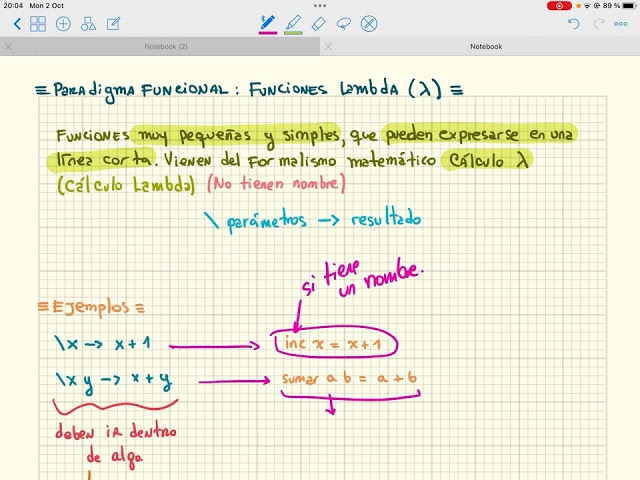 20:04 Mon 2 Oct
89 %
Notebook (2)
Notebook
≡ PARAdigma FUNCIONAL: FUNCIONES Lambda (λ) ≡
FUNCIONES muy pequeñas y simples, que pueden expresarse en una
línea corta. Vienen del Formalismo matemático Cálculo λ
(Cálculo Lambda) (No tienen nombre)
\ parámetros → resultado
si tiene
un nombre.
≡ Ejemplos ≡
\x → x + 1 → inc x = x + 1
\x y → x + y → sumar a b = a + b
deben ir dentro
de algo